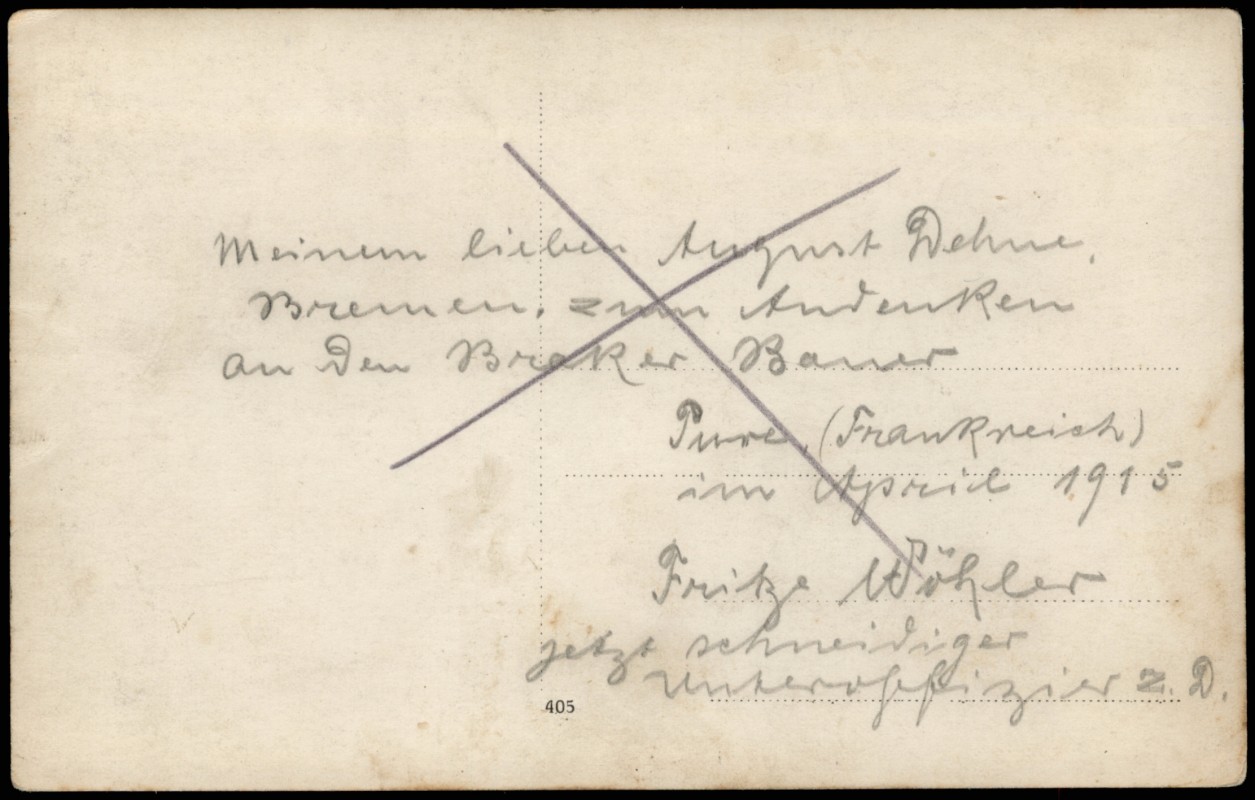 Meinem lieben August Dehne,
Bremen. zum Andenken
an den Braker Bauer
(Frankreich)
im April 1915
Fritze Wöhler
jetzt schneidiger
Unteroffizier z. D.
405